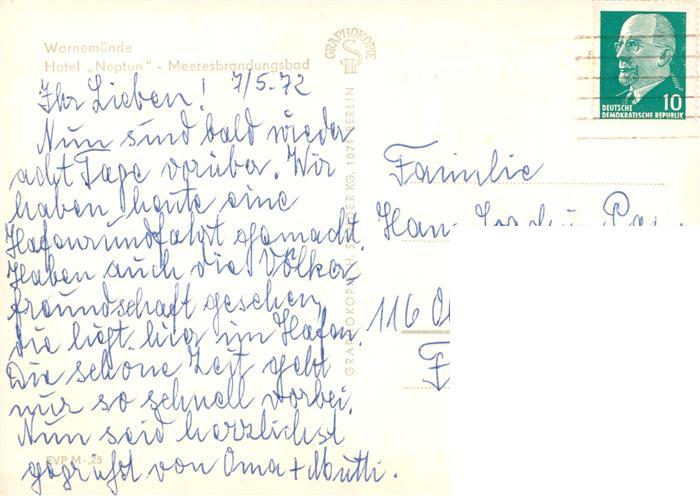 Warnemünde
Hotel „Neptun" - Meeresbrandungsbad
7/5.72
Ihr Lieben!
Nun sind bald wieder
acht Tage vorüber. Wir
haben heute eine
Hafenrundfahrt gemacht.
Haben auch die Völker
freundschaft gesehen,
die liegt hier im Hafen.
Die schöne Zeit geht
nur so schnell vorbei.
Nun seid herzlichst
gegrüßt von Oma + Mutti.
EVP M -,25
GRAPHOKOPIE
KG, 1071 BERLIN
10
DEUTSCHE
DEMOKRATISCHE REPUBLIK
Familie
116